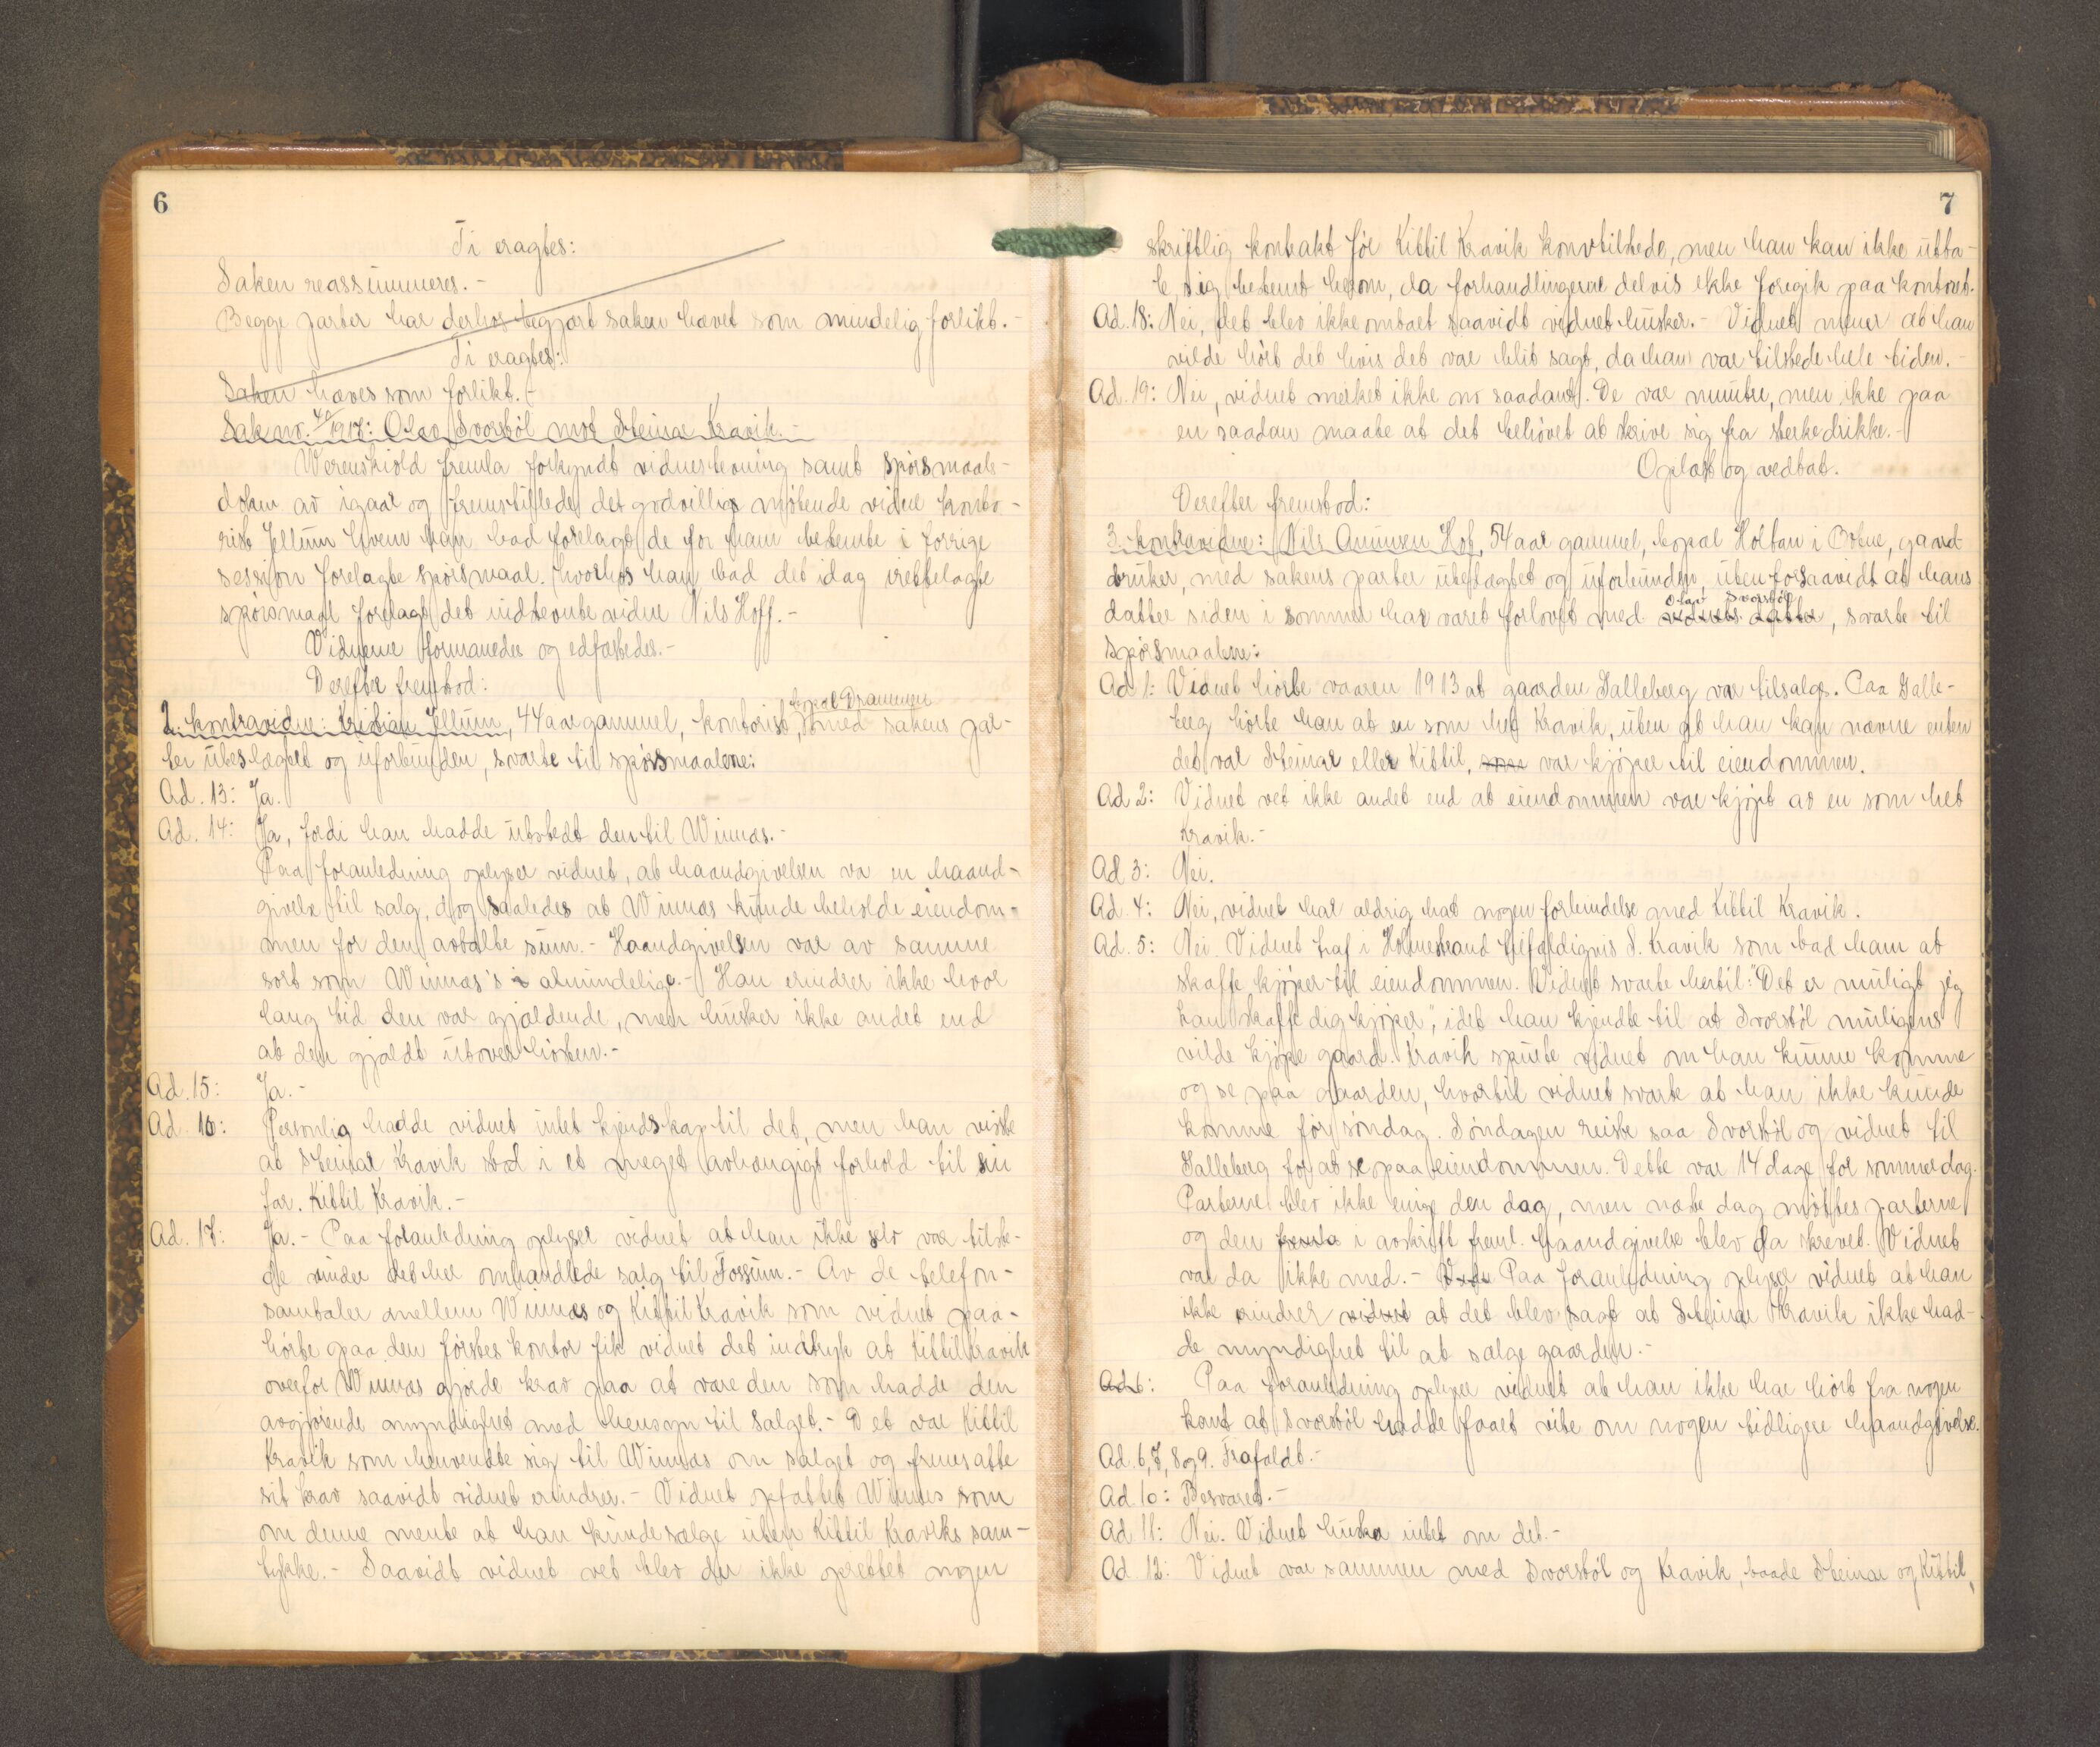 6
Ti eragtes:
Saken reassummeres.-
Begge parter har derhos begjært saken hævet som mindelig forlikt.-
Ti eragtes:
Saken hæves som forlikt.-
Sak nr. 40/1917: Olav Svorstöl mot Steinar Kravik.-
Werenskiold fremla forkyndt vidnestevning samt spörsmaals-
dokm av igaar og fremstillede det godvillig mötende vidne konto-
rist Jellum hvem han bad forelagt de for ham bestemte i forrige
session forelagte spörsmaal. hvorhos han bad det idag irettelagte
spörsmaal forelagt det indstevnte vidne Nils Hoff.-
Vidnerne formanedes og edfæstedes.-
Derefter fremstod:
bopæl Drammen
2. kontravidne: Kristian Jellum, 44 aar gammel, kontorist, med sakens par-
ter ubeslægtet og uforbunden, svarte til spörsmaalene:
Ad. 13: Ja.
Ad. 14: Ja, fordi han hadde utstedt den til Winnæs.-
Paa foranledning oplyser vidnet, at haandgivelsen var en haand-
givelse til salg, dog saaledes at Winnæs kunde beholde eiendom-
men for den avtalte sum.- Haandgivelsen var av samme
sort som Winnæs's i almindelige.- Han erindrer ikke hvor
lang tid den var gjældende, men husker ikke andet end
at den gjaldt utover hösten.-
Ad. 15: Ja.-
Ad. 16: Personlig hadde vidnet intet kjendskap til det, men han visste
at Steinar Kravik stod i et meget avhængigt forhold til sin
far. Kittil Kravik.-
Ad. 17: Ja.- Paa foranledning oplyser vidnet at han ikke selv var tilste-
de under det her omhandlede salg til Fossum.- Av de telefon-
samtaler mellem Winnæs og Kittil Kravik som vidnet paa-
hörte paa den förstes kontor fik vidnet det indtryk at Kittil Kravik
overfor Winnæs gjorde krav paa at være den som hadde den
avgjörende myndighet med hensyn til salget.- Det var Kittil
Kravik som henvendte sig til Winnæs om salget og fremsatte
sit krav saavidt vidnet erindrer.- Vidnet opfattet Winnæs som
om denne mente at han kunde sælge uten Kittil Kraviks sam-
tykke.- Saavidt vidnet vet blev der ikke oprettet nogen
7
skriftlig kontrakt för Kittil Kravik kom tilstede, men han kan ikke utta-
le sig bestemt herom, da forhandlingerne delvis ikke foregik paa kontoret.
Ad. 18: Nei, det blev ikke omtalt saavidt vidnet husker.- Vidnet mener at han
vilde hört det hvis det var blit sagt, da han var tilstede hele tiden.-
Ad. 19: Nei, vidnet merket ikke no saadant. De var muntre, men ikke paa
en saadan maate at det behövet at skrive sig fra sterke drikke.-
Oplæst og vedtat.
Derefter fremstod:
3. kontravidne: Nils Anunsen Hof, 54 aar gammel, bopæl Holtan i Botne, gaard-
bruker, med sakens parter ubeslægtet og uforbunden uten forsaavidt at hans
Olav Svorstöl
datter siden i sommer har været forlovet med vidnets datter, svarte til
spörsmaalene:
Ad 1: Vidnet hörte vaaren 1913 at gaarden Salleberg var tilsalgs. Paa Salle-
berg hörte han at en som het Kravik, uten at han kan nævne enten
det var Steinar eller Kittil, som var kjöper til eiendommen.
Ad 2: Vidnet vet ikke andet end at eiendommen var kjöpt av en som het
Kravik.-
Ad 3: Nei.
Ad. 4: Nei, vidnet har aldrig hat nogen forbindelse med Kittil Kravik.
Ad. 5: Nei. Vidnet traf i Holmestrand tilfældigvis S. Kravik som bad ham at
skaffe kjöper til eiendommen. Vidnet svarte hertil: "Det er muligt jeg
kan skaffe dig kjöper", idet han kjendte til at Svorstöl muligens
vilde kjöpe gaard. Kravik spurte vidnet om han kunne komme
og se paa gaarden, hvortil vidnet svarte at han ikke kunde
komme för söndag. Söndagen reiste saa Svorstöl og vidnet til
Salleberg for at se paa eiendommen. Dette var 14 dage för sommerdag.
Parterne blev ikke enige den dag, men næste dag möttes parterne
og den fremla i avskrift freml. haandgivelse blev da skrevet. Vidnet
var da ikke med.- Vidn Paa foranledning oplyser vidnet at han
ikke erindrer vidnet at det blev sagt at Steinar Kravik ikke had-
de myndighet til at sælge gaarden.-
Ad 6: Paa foranledning oplyser vidnet at han ikke har hört fra nogen
kant at Svorstöl hadde faaet vite om nogen tidligere haandgivelse.
Ad. 6, 7, 8 og 9. Frafaldt.-
Ad 10: Besvaret.-
Ad 11: Nei. Vidnet huska intet om det.-
Ad. 12: Vidnet var sammen med Svorstöl og Kravik, baade Steinar og Kittil,